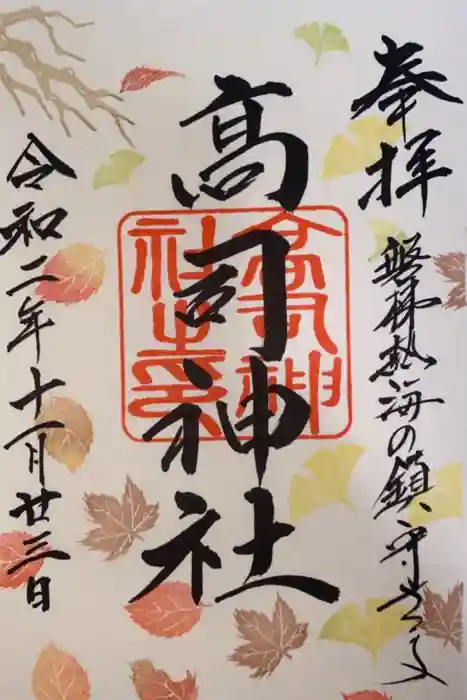 奉拝
磐梯熱海の鎮守
高司神社
高司神社之印
令和二年十一月廿三日